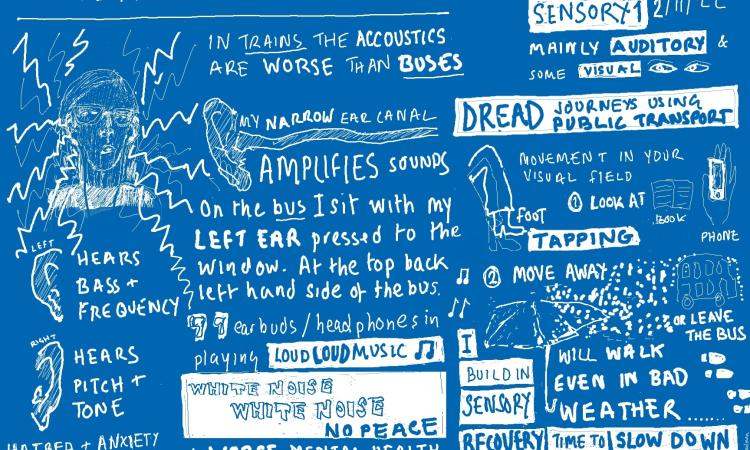 IN TRAINS THE ACCOUSTICS
ARE WORSE THAN BUSES
MY NARROW EAR CANAL
AMPLIFIES SOUNDS
On the bus I sit with my
LEFT EAR pressed to the
window. At the top back
left hand side of the bus.
earbuds / headphones in
playing LOUD LOUD MUSIC
WHITE NOISE
WHITE NOISE
NO PEACE
LEFT
HEARS
BASS +
FREQUENCY
RIGHT
HEARS
PITCH +
TONE
HATRED + ANXIETY
MENTAL HEALTH
SENSORY 1
MAINLY AUDITORY &
SOME VISUAL
DREAD JOURNEYS USING
PUBLIC TRANSPORT
MOVEMENT IN YOUR
VISUAL FIELD
① LOOK AT
BOOK
PHONE
FOOT
TAPPING
② MOVE AWAY
OR LEAVE
THE BUS
I
WILL WALK
EVEN IN BAD
WEATHER.......
BUILD IN
SENSORY
RECOVERY TIME TO SLOW DOWN